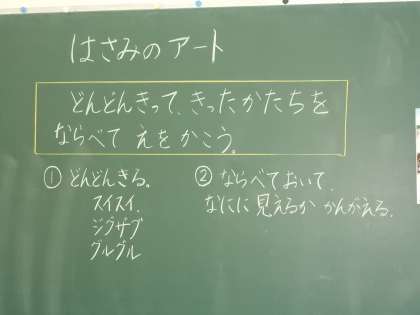 はさみのアート
どんどんきって、きったかたちを
ならべて えを かこう。
① どんどんきる。
スイスイ
ジグザグ
グルグル
② ならべておいて、
なにに 見えるか かんがえる。